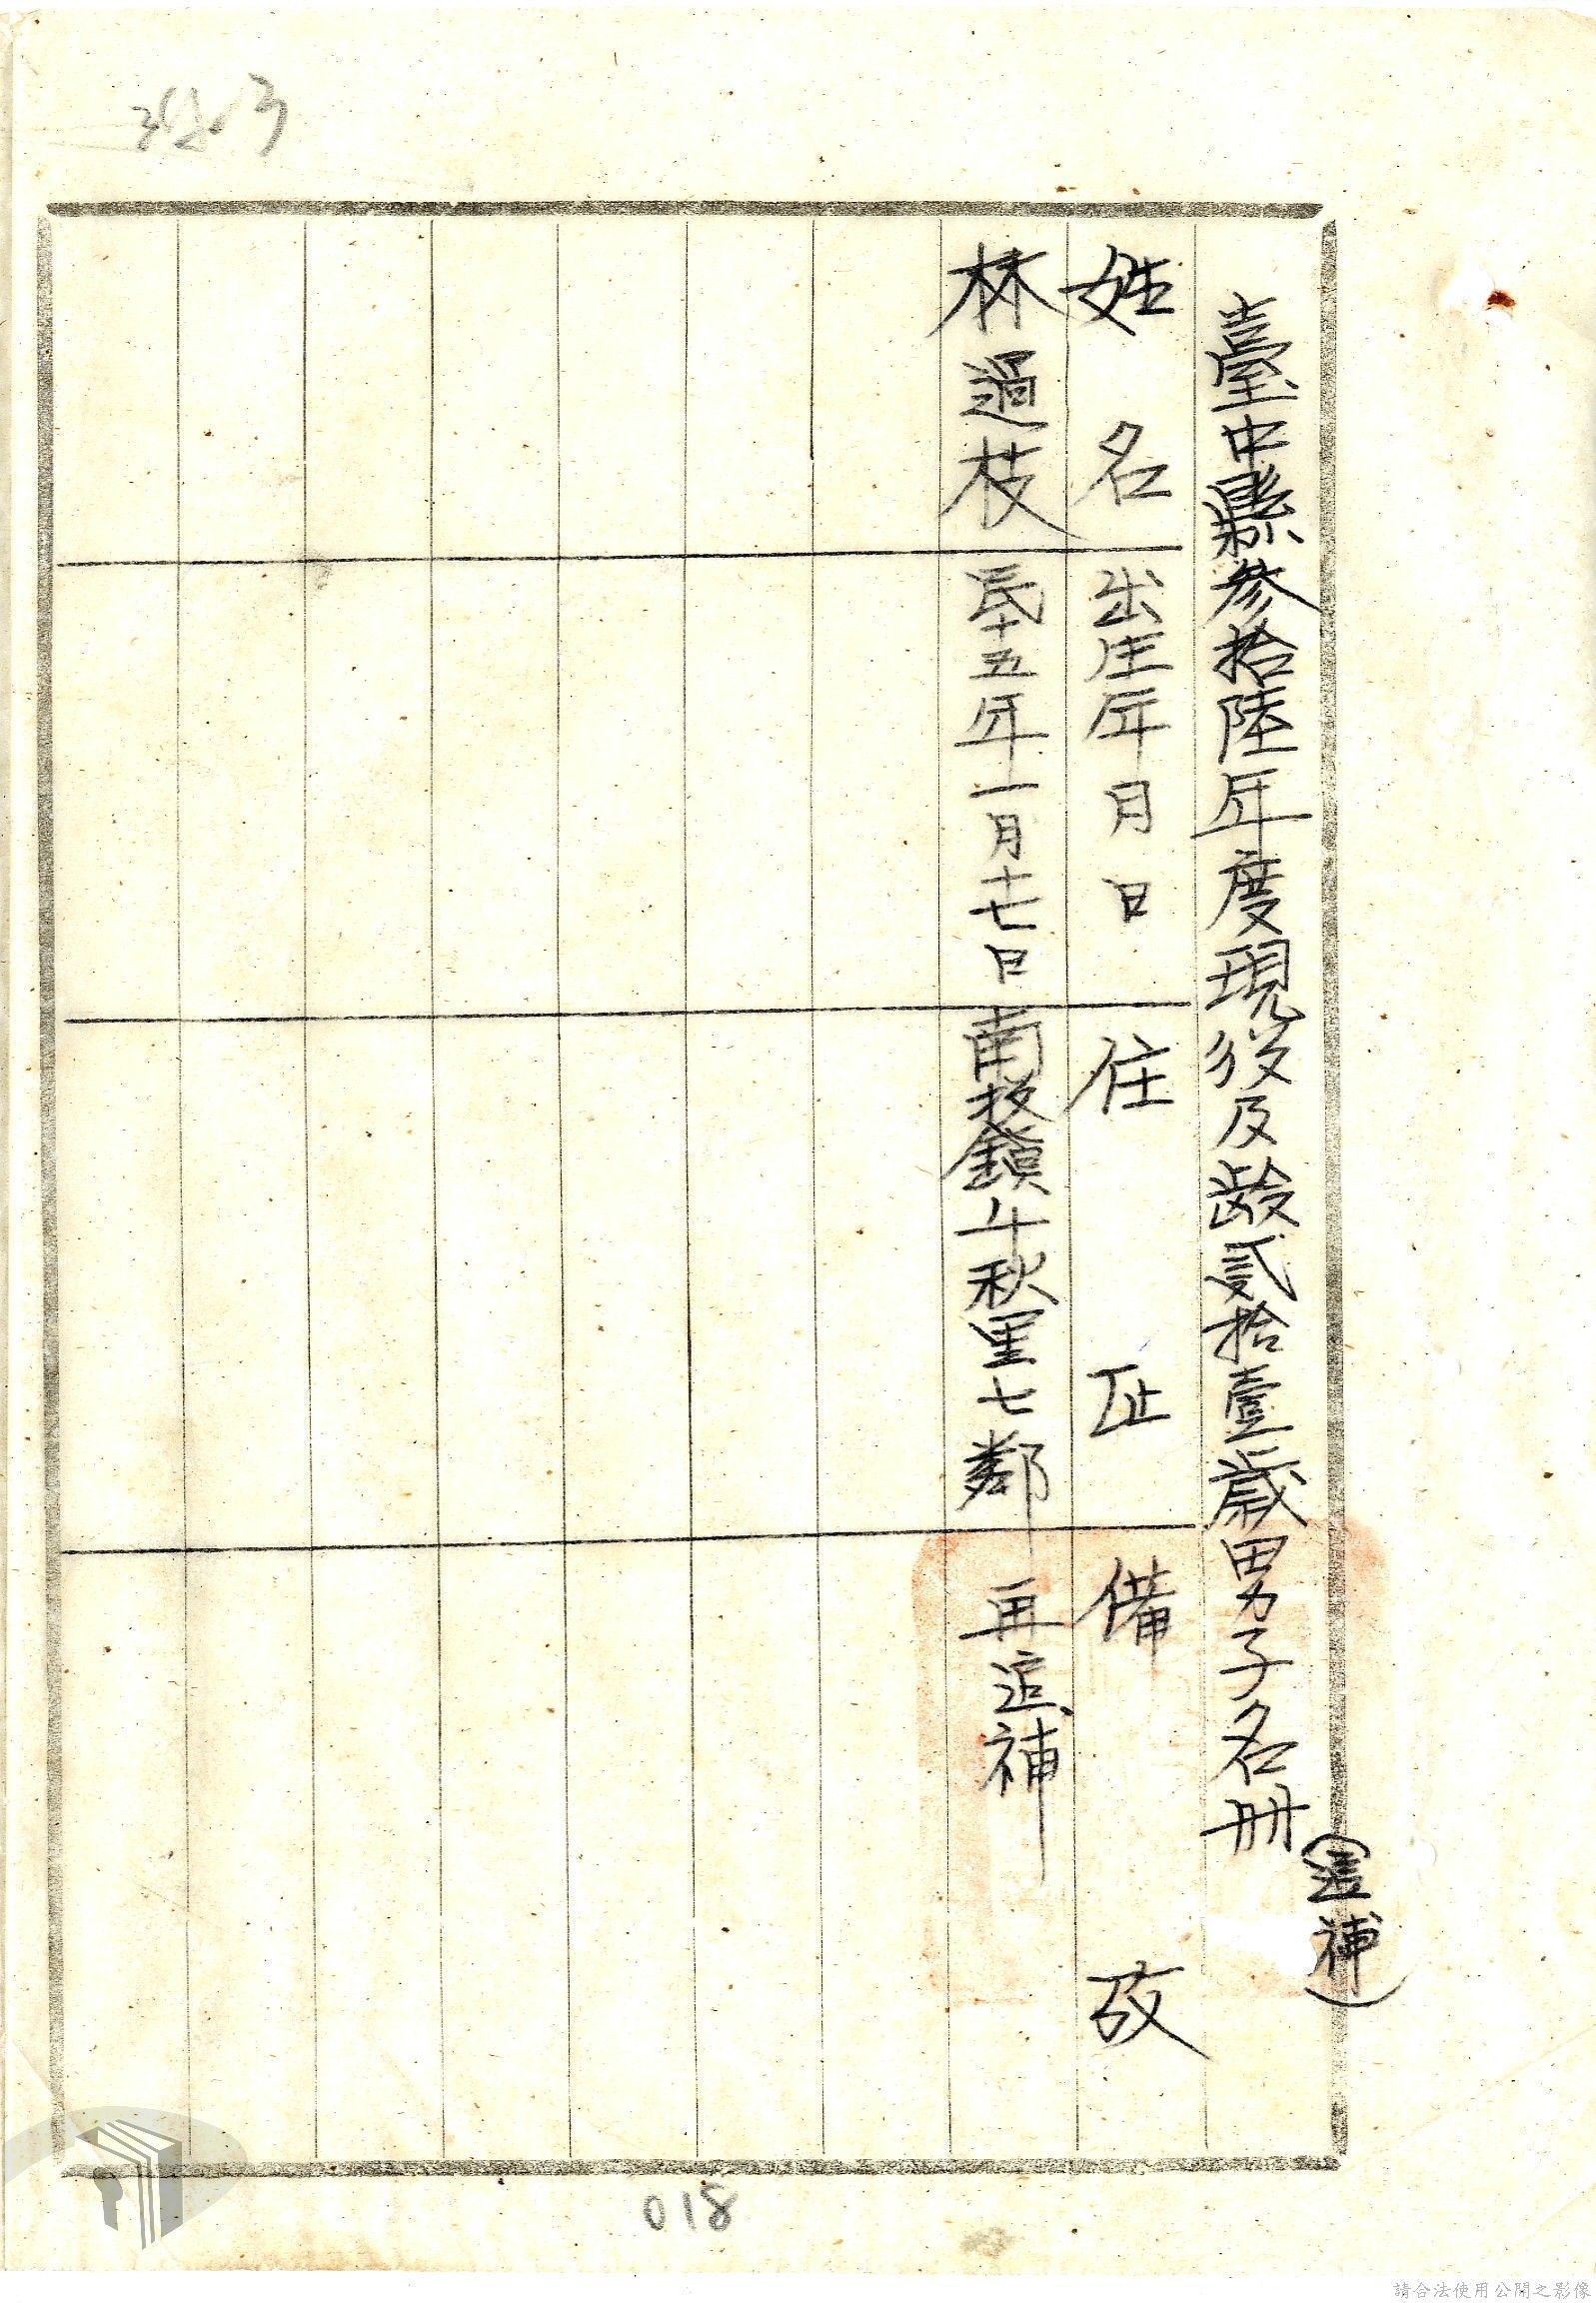 臺中縣參拾陸年度現役及齡貳拾壹歲男子名册(遺補)
姓名 出生年月日 住址 備攷
林過枝 民十五年一月十七日 南投鎮千秋里七鄰 再追補
018
請合法使用公開之影像